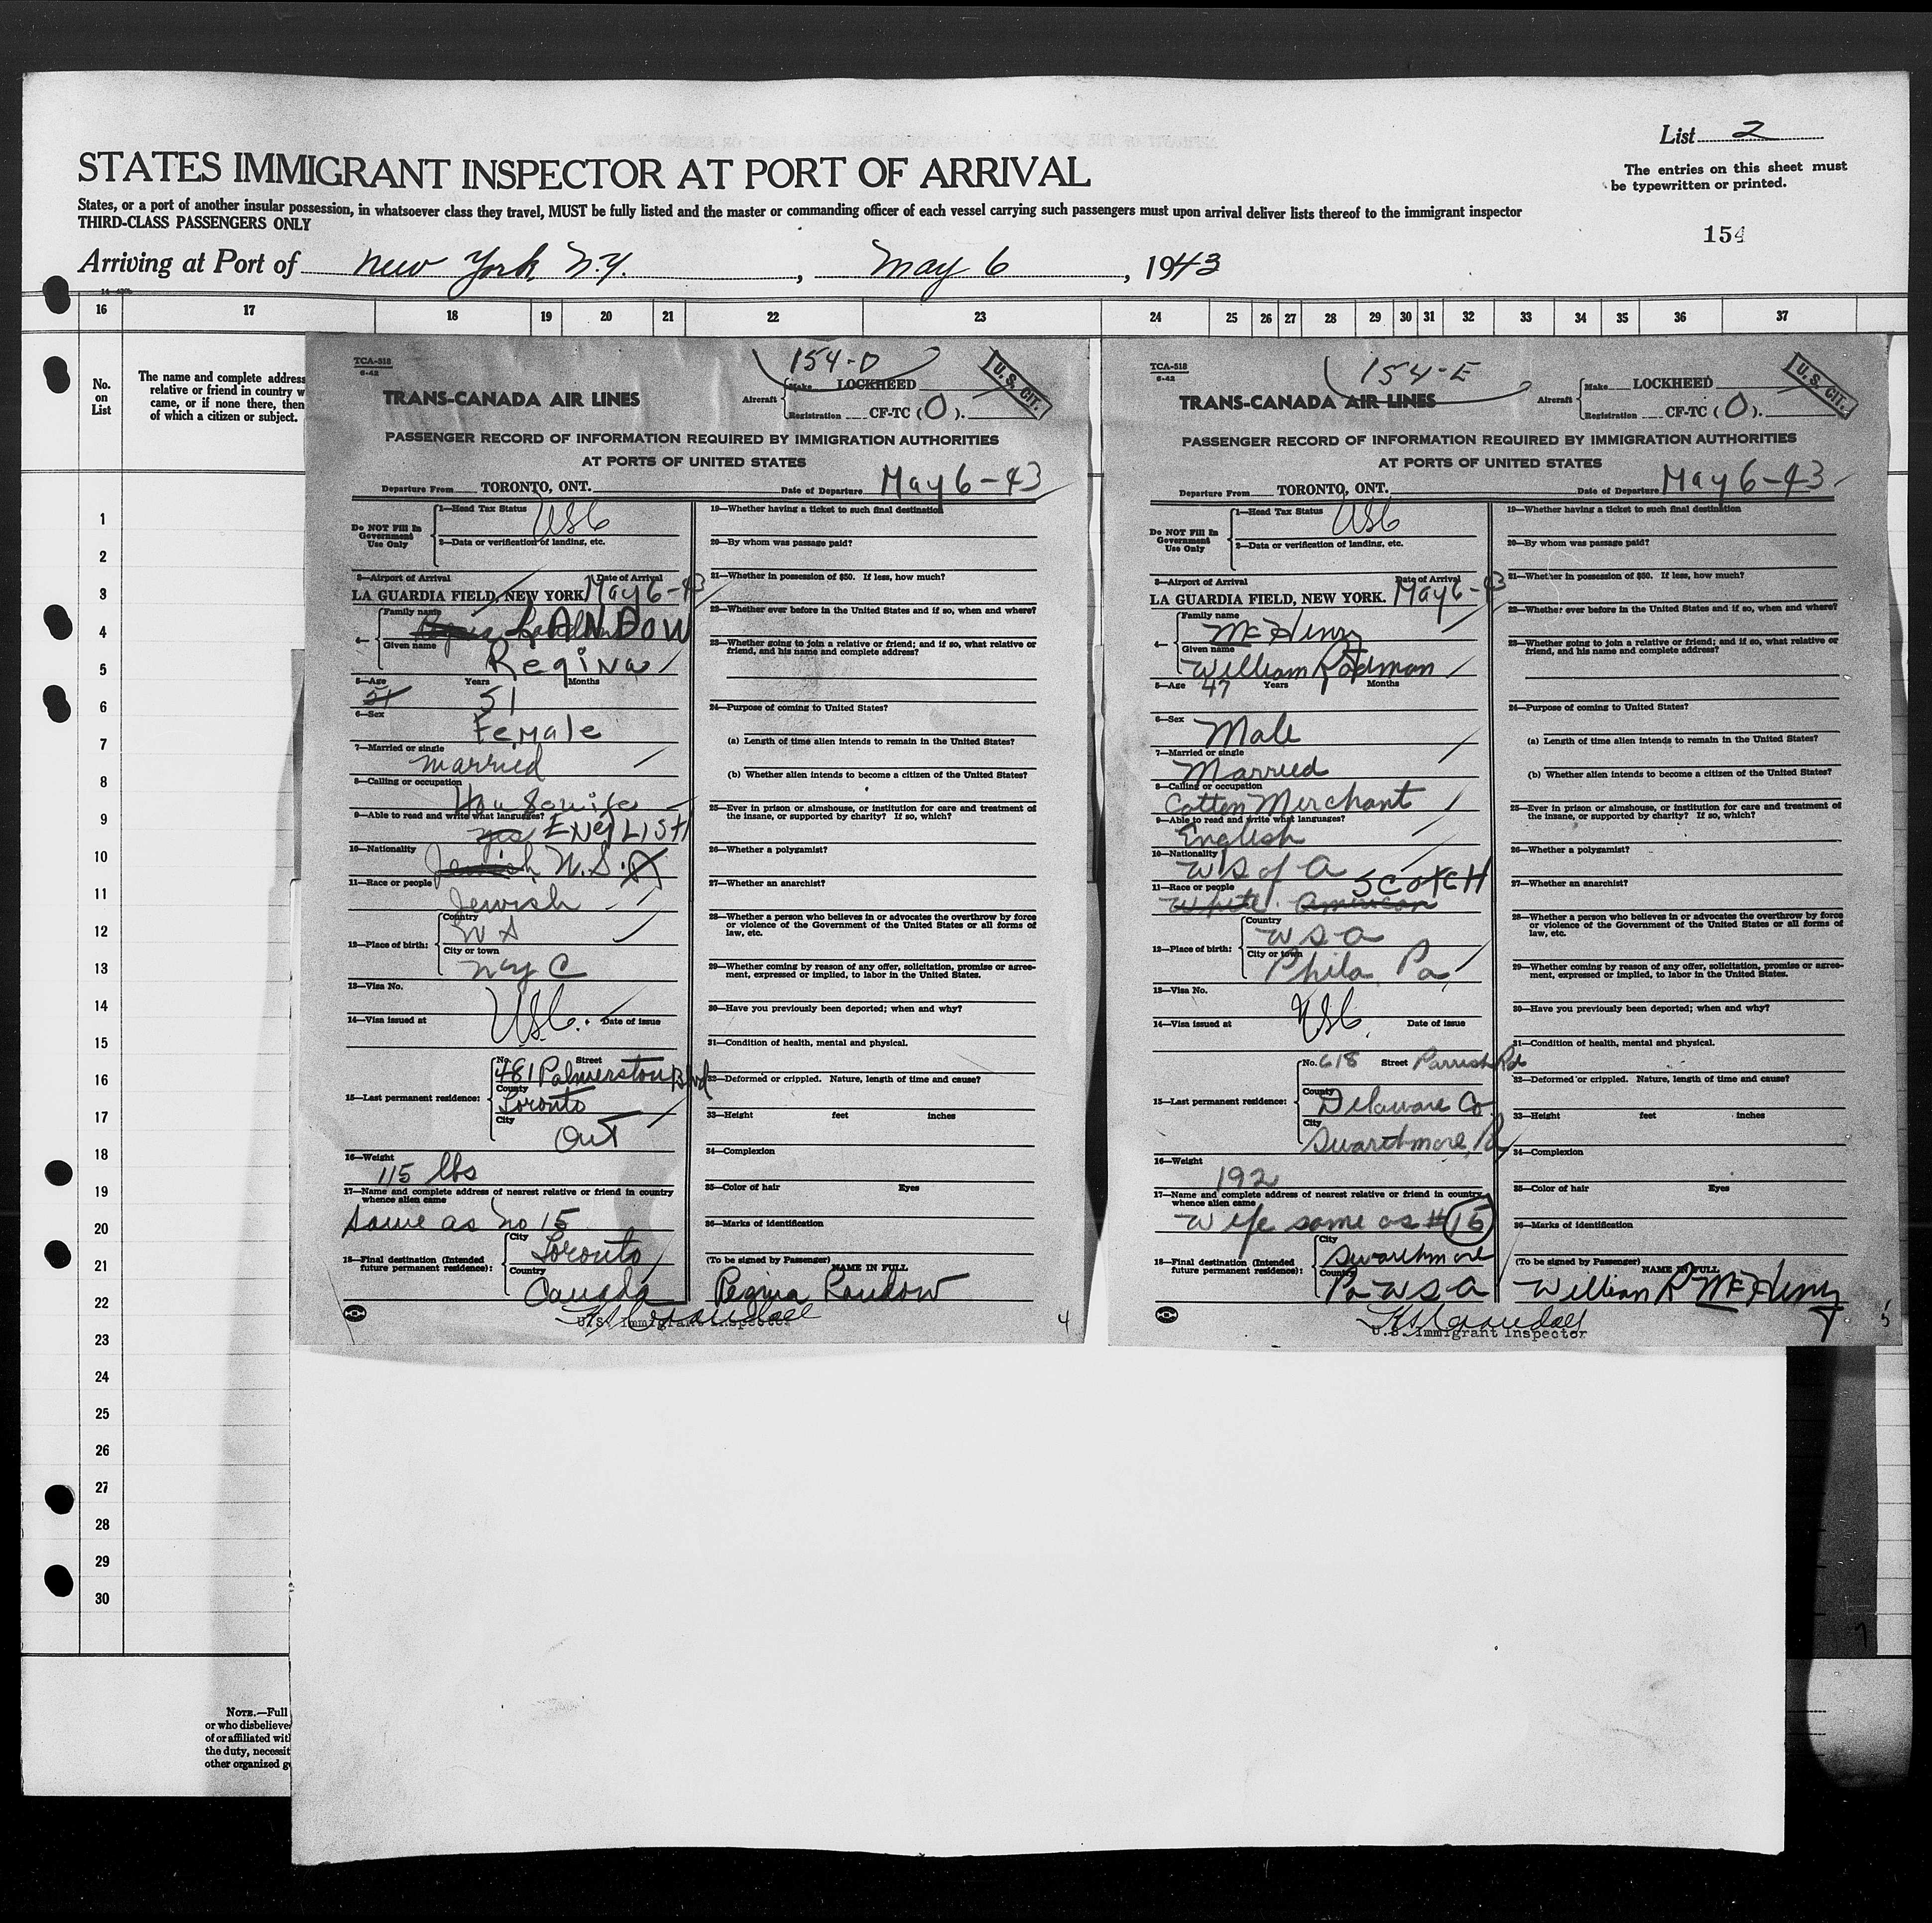 List 2
STATES IMMIGRANT INSPECTOR AT PORT OF ARRIVAL
The entries on this sheet must
be typewritten or printed.
States, or a port of another insular possession, in whatsoever class they travel, MUST be fully listed and the master or commanding officer of each vessel carrying such passengers must upon arrival deliver lists thereof to the immigrant inspector
THIRD-CLASS PASSENGERS ONLY
154
Arriving at Port of New York N.Y., May 6, 1943
16 17 18 19 20 21 22 23 24 25 26 27 28 29 30 31 32 33 34 35 36 37
No.
on
List
The name and complete address
relative or friend in country w
came, or if none there, then
of which a citizen or subject.
1
2
3
4
5
6
7
8
9
10
11
12
13
14
15
16
17
18
19
20
21
22
23
24
25
26
27
28
29
30
NOTE.—Full
or who disbelieve
of or affiliated wit
the duty, necessit
other organized g
TCA-518
6-42
154-D
U.S. CIT.
TRANS-CANADA AIR LINES
Aircraft
Make LOCKHEED
Registration CF-TC (O).
PASSENGER RECORD OF INFORMATION REQUIRED BY IMMIGRATION AUTHORITIES
AT PORTS OF UNITED STATES
Departure From TORONTO, ONT. Date of Departure May 6-43
Do NOT Fill In
Government
Use Only
1—Head Tax Status USC
2—Data or verification of landing, etc.
3—Airport of Arrival Date of Arrival
LA GUARDIA FIELD, NEW YORK May 6-43
4—
Family name LANDOW
Given name Regina
5—Age Years Months
51 51
6—Sex Female
7—Married or single
married
8—Calling or occupation
Housewife
9—Able to read and write what languages?
yes ENGLISH
10—Nationality Jewish U.S.A
11—Race or people
Jewish
12—Place of birth:
Country
U S
City or town
NY C
13—Visa No.
USC.
14—Visa issued at Date of issue
15—Last permanent residence:
No. Street
481 Palmerston Blvd
County
Toronto
City
Ont
16—Weight
115 lbs
17—Name and complete address of nearest relative or friend in country
whence alien came
Same as No 15
18—Final destination (Intended
future permanent residence):
City
Toronto
Country
Canada
19—Whether having a ticket to such final destination
20—By whom was passage paid?
21—Whether in possession of $50. If less, how much?
22—Whether ever before in the United States and if so, when and where?
23—Whether going to join a relative or friend; and if so, what relative or
friend, and his name and complete address?
24—Purpose of coming to United States?
(a) Length of time alien intends to remain in the United States?
(b) Whether alien intends to become a citizen of the United States?
25—Ever in prison or almshouse, or institution for care and treatment of
the insane, or supported by charity? If so, which?
26—Whether a polygamist?
27—Whether an anarchist?
28—Whether a person who believes in or advocates the overthrow by force
or violence of the Government of the United States or all forms of
law, etc.
29—Whether coming by reason of any offer, solicitation, promise or agree-
ment, expressed or implied, to labor in the United States.
30—Have you previously been deported; when and why?
31—Condition of health, mental and physical.
32—Deformed or crippled. Nature, length of time and cause?
33—Height feet inches
34—Complexion
35—Color of hair Eyes
36—Marks of identification
(To be signed by Passenger) NAME IN FULL
Regina Landow
U.S. Immigrant Inspector
4
TCA-518
6-42
154-E
U.S. CIT.
TRANS-CANADA AIR LINES
Aircraft
Make LOCKHEED
Registration CF-TC (O).
PASSENGER RECORD OF INFORMATION REQUIRED BY IMMIGRATION AUTHORITIES
AT PORTS OF UNITED STATES
Departure From TORONTO, ONT. Date of Departure May 6-43
Do NOT Fill In
Government
Use Only
1—Head Tax Status USC
2—Data or verification of landing, etc.
3—Airport of Arrival Date of Arrival
LA GUARDIA FIELD, NEW YORK. May 6-43
4—
Family name
McHenry
Given name
William Rodman
5—Age 47 Years Months
6—Sex
Male
7—Married or single
Married
8—Calling or occupation
Cotten Merchant
9—Able to read and write what languages?
English
10—Nationality
U S of A
11—Race or people SCOTCH
White. American
12—Place of birth:
Country
U S A
City or town
Phila Pa
13—Visa No.
USC.
14—Visa issued at Date of issue
15—Last permanent residence:
No. 618 Street Parrish Rd
County
Delaware Co
City
Swarthmore, Pa
16—Weight
192
17—Name and complete address of nearest relative or friend in country
whence alien came
Wife same as #15
18—Final destination (Intended
future permanent residence):
City
Swarthmore
Country
Pa U S A
19—Whether having a ticket to such final destination
20—By whom was passage paid?
21—Whether in possession of $50. If less, how much?
22—Whether ever before in the United States and if so, when and where?
23—Whether going to join a relative or friend; and if so, what relative or
friend, and his name and complete address?
24—Purpose of coming to United States?
(a) Length of time alien intends to remain in the United States?
(b) Whether alien intends to become a citizen of the United States?
25—Ever in prison or almshouse, or institution for care and treatment of
the insane, or supported by charity? If so, which?
26—Whether a polygamist?
27—Whether an anarchist?
28—Whether a person who believes in or advocates the overthrow by force
or violence of the Government of the United States or all forms of
law, etc.
29—Whether coming by reason of any offer, solicitation, promise or agree-
ment, expressed or implied, to labor in the United States.
30—Have you previously been deported; when and why?
31—Condition of health, mental and physical.
32—Deformed or crippled. Nature, length of time and cause?
33—Height feet inches
34—Complexion
35—Color of hair Eyes
36—Marks of identification
(To be signed by Passenger) NAME IN FULL
William R McHenry
U.S. Immigrant Inspector
5